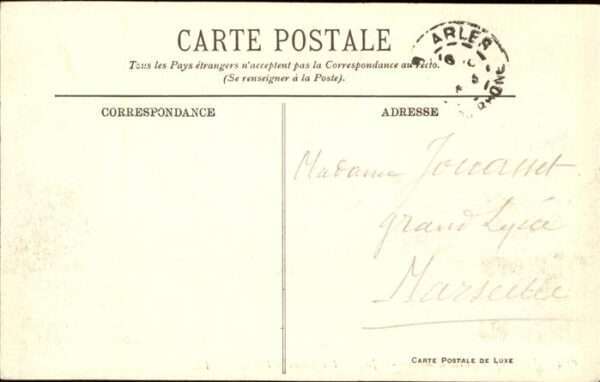 CARTE POSTALE
Tous les Pays étrangers n'acceptent pas la Correspondance au recto.
(Se renseigner à la Poste).
ARLES
RHONE
CORRESPONDANCE
ADRESSE
Madame Jouanst
grand Lycée
Marseille
CARTE POSTALE DE LUXE